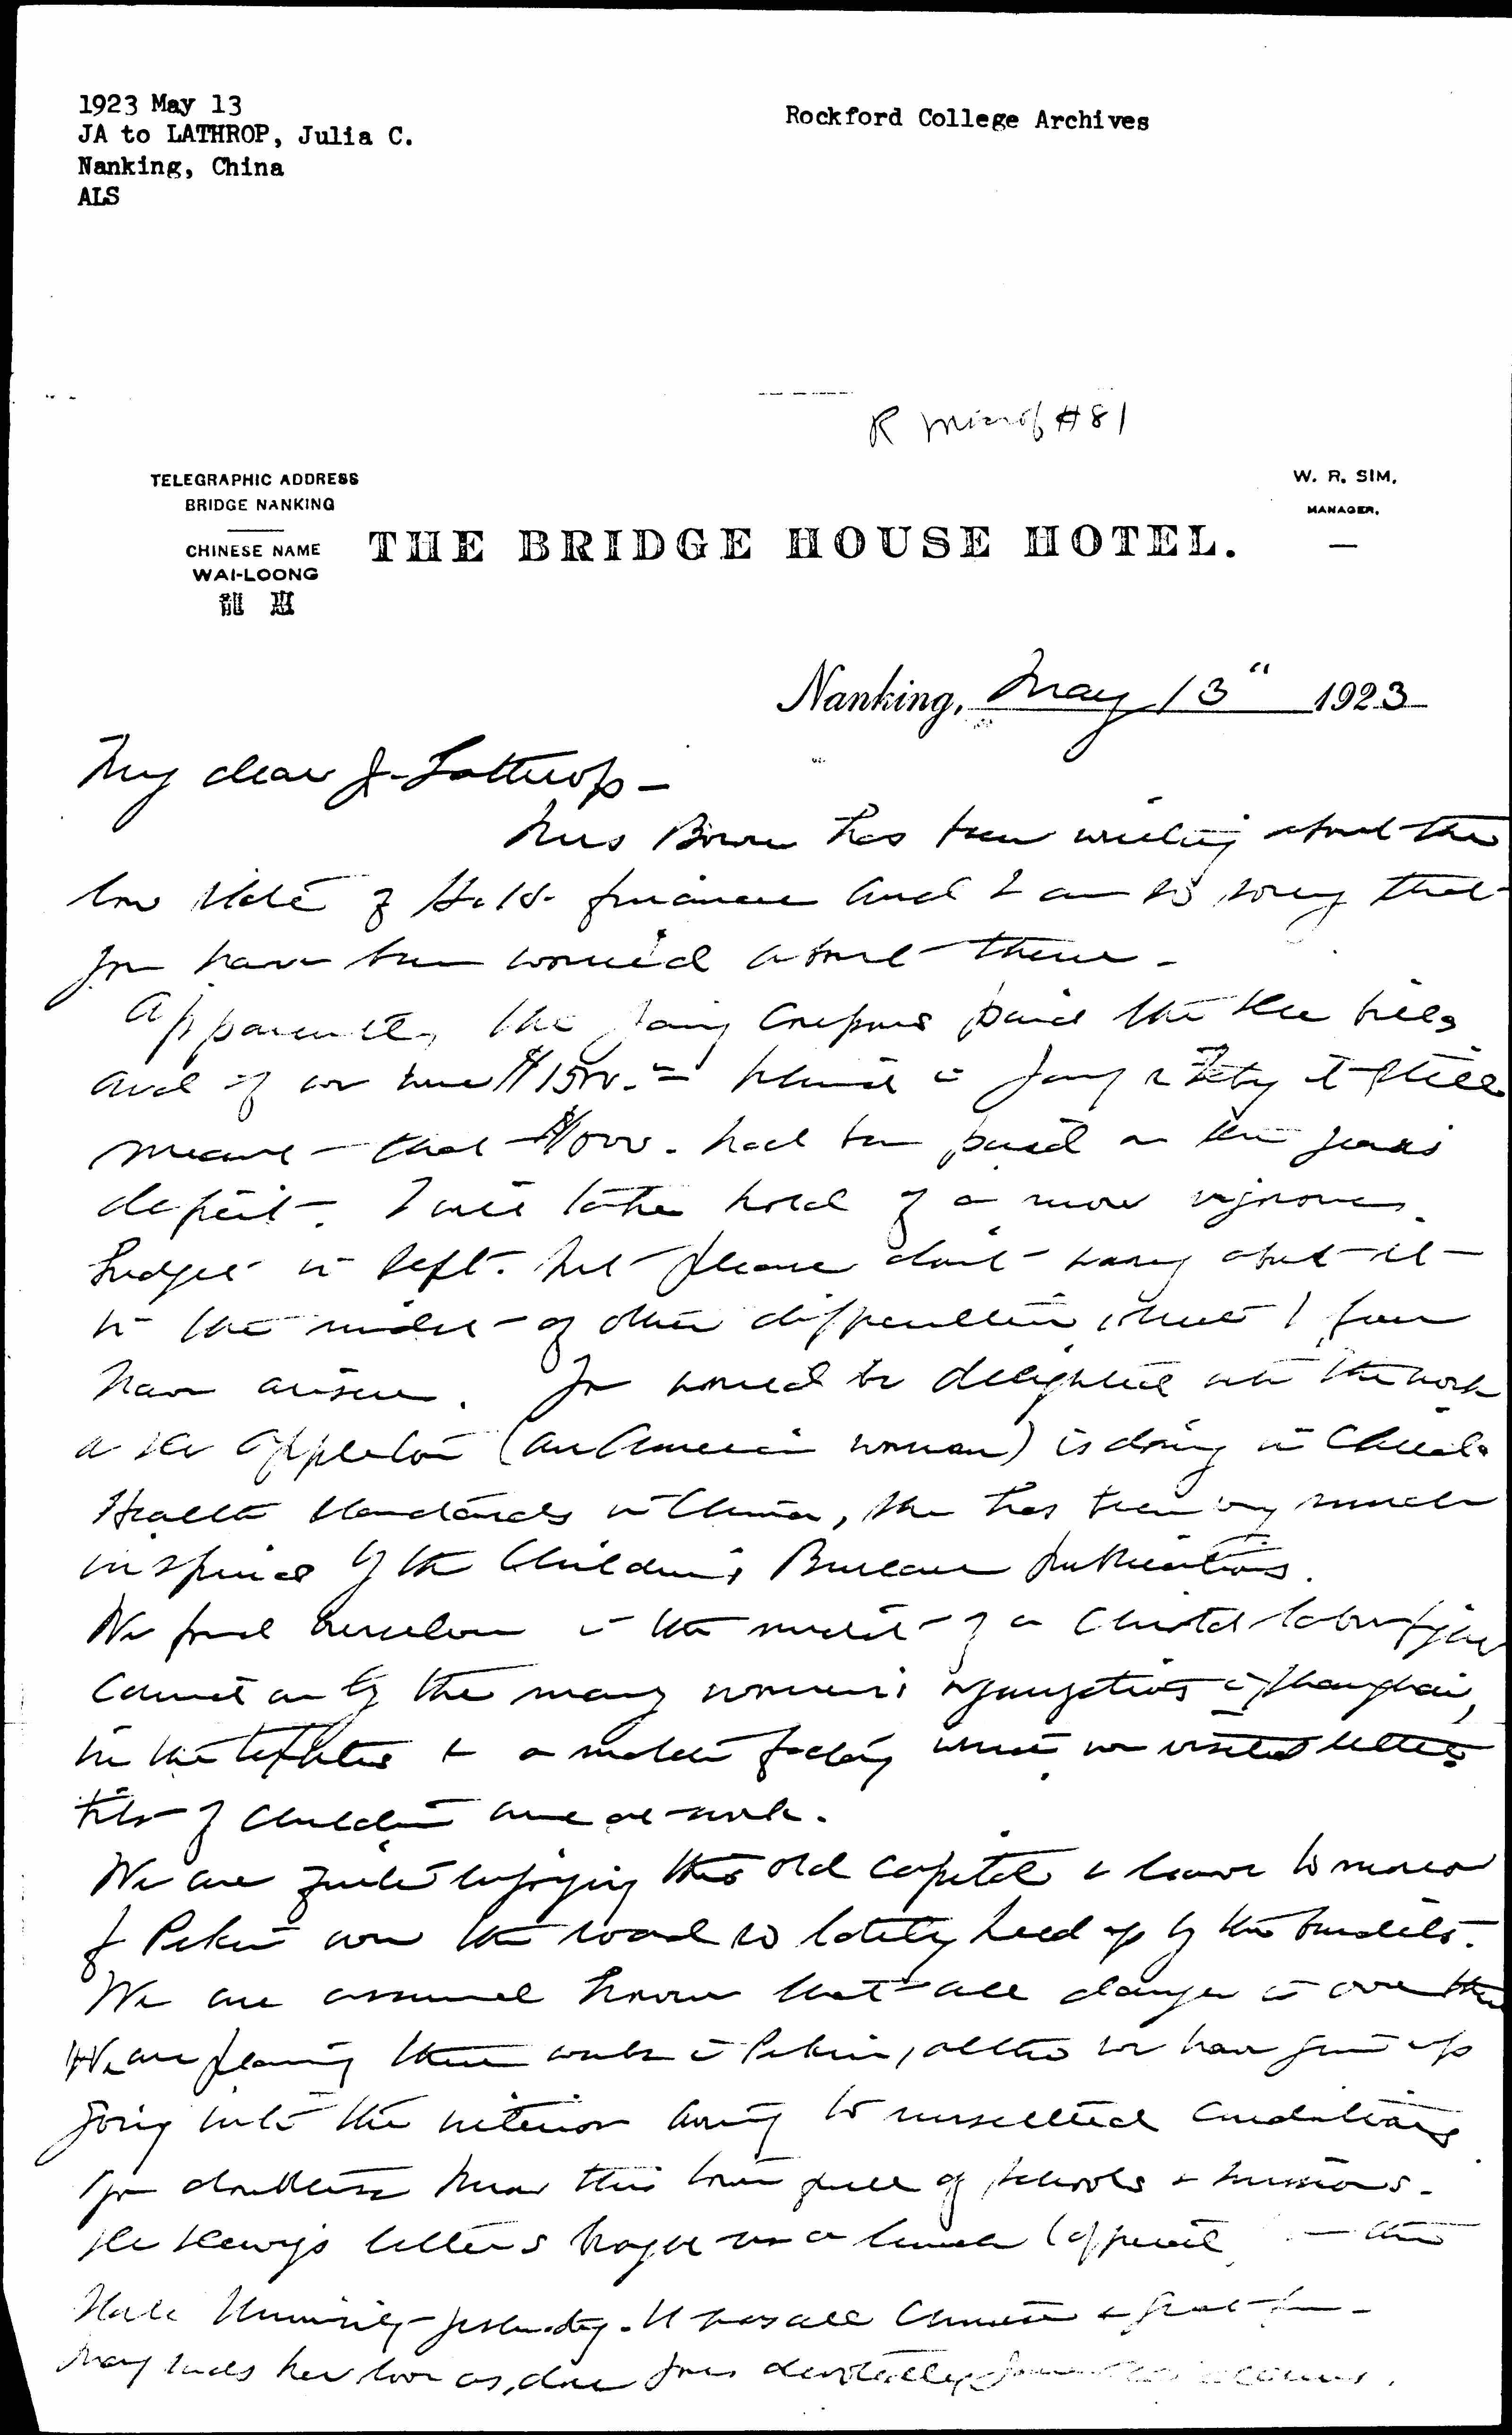 1923 May 13
JA to LATHROP, Julia C.
Nanking, China
ALS
Rockford College Archives
R Microf #81
TELEGRAPHIC ADDRESS
BRIDGE NANKING
CHINESE NAME
WAI-LOONG
THE BRIDGE HOUSE HOTEL.
W. R. SIM,
MANAGER.
Nanking, May 13" 1923
My dear J- Lathrop-
Mrs Bowen has been writing about the
low state of H. H. finances and I am so sorry that
you have been worried about them-
Apparently the Joing paid the bills
and if we were behind in Jany & Feby it still
means that had been paid on the years
deficit. I will take hold of a more vigorous
budget in Sept. but please don't worry about it
in the midst of other difficulties which I fear
have arisen. You would be delighted with the work
a Dr Appleton (an American woman) is doing in Child
Health Standards in China, she has been very much
inspired by the Children's Bureau publications.
We found ourselves in the midst of a Child labor
carried on by the many women's organizations in Shanghai,
in the textiles & a match factory which we visited little
tots of children were at work.
We are quite enjoying this old capital & leave tomorrow
for Pekin over the road so lately held up by the bandits.
We are assured however that all danger is over &
We are planning three weeks in Pekin, altho we have given up
going into the interior owing to unsettled conditions
You doubtless know this town full of schools & missions.
Dr Dewey's letters brought us a lunch at the
State University yesterday. It was all Chinese & great fun-
Mary sends her love as, does yours devotedly Jane Addams.